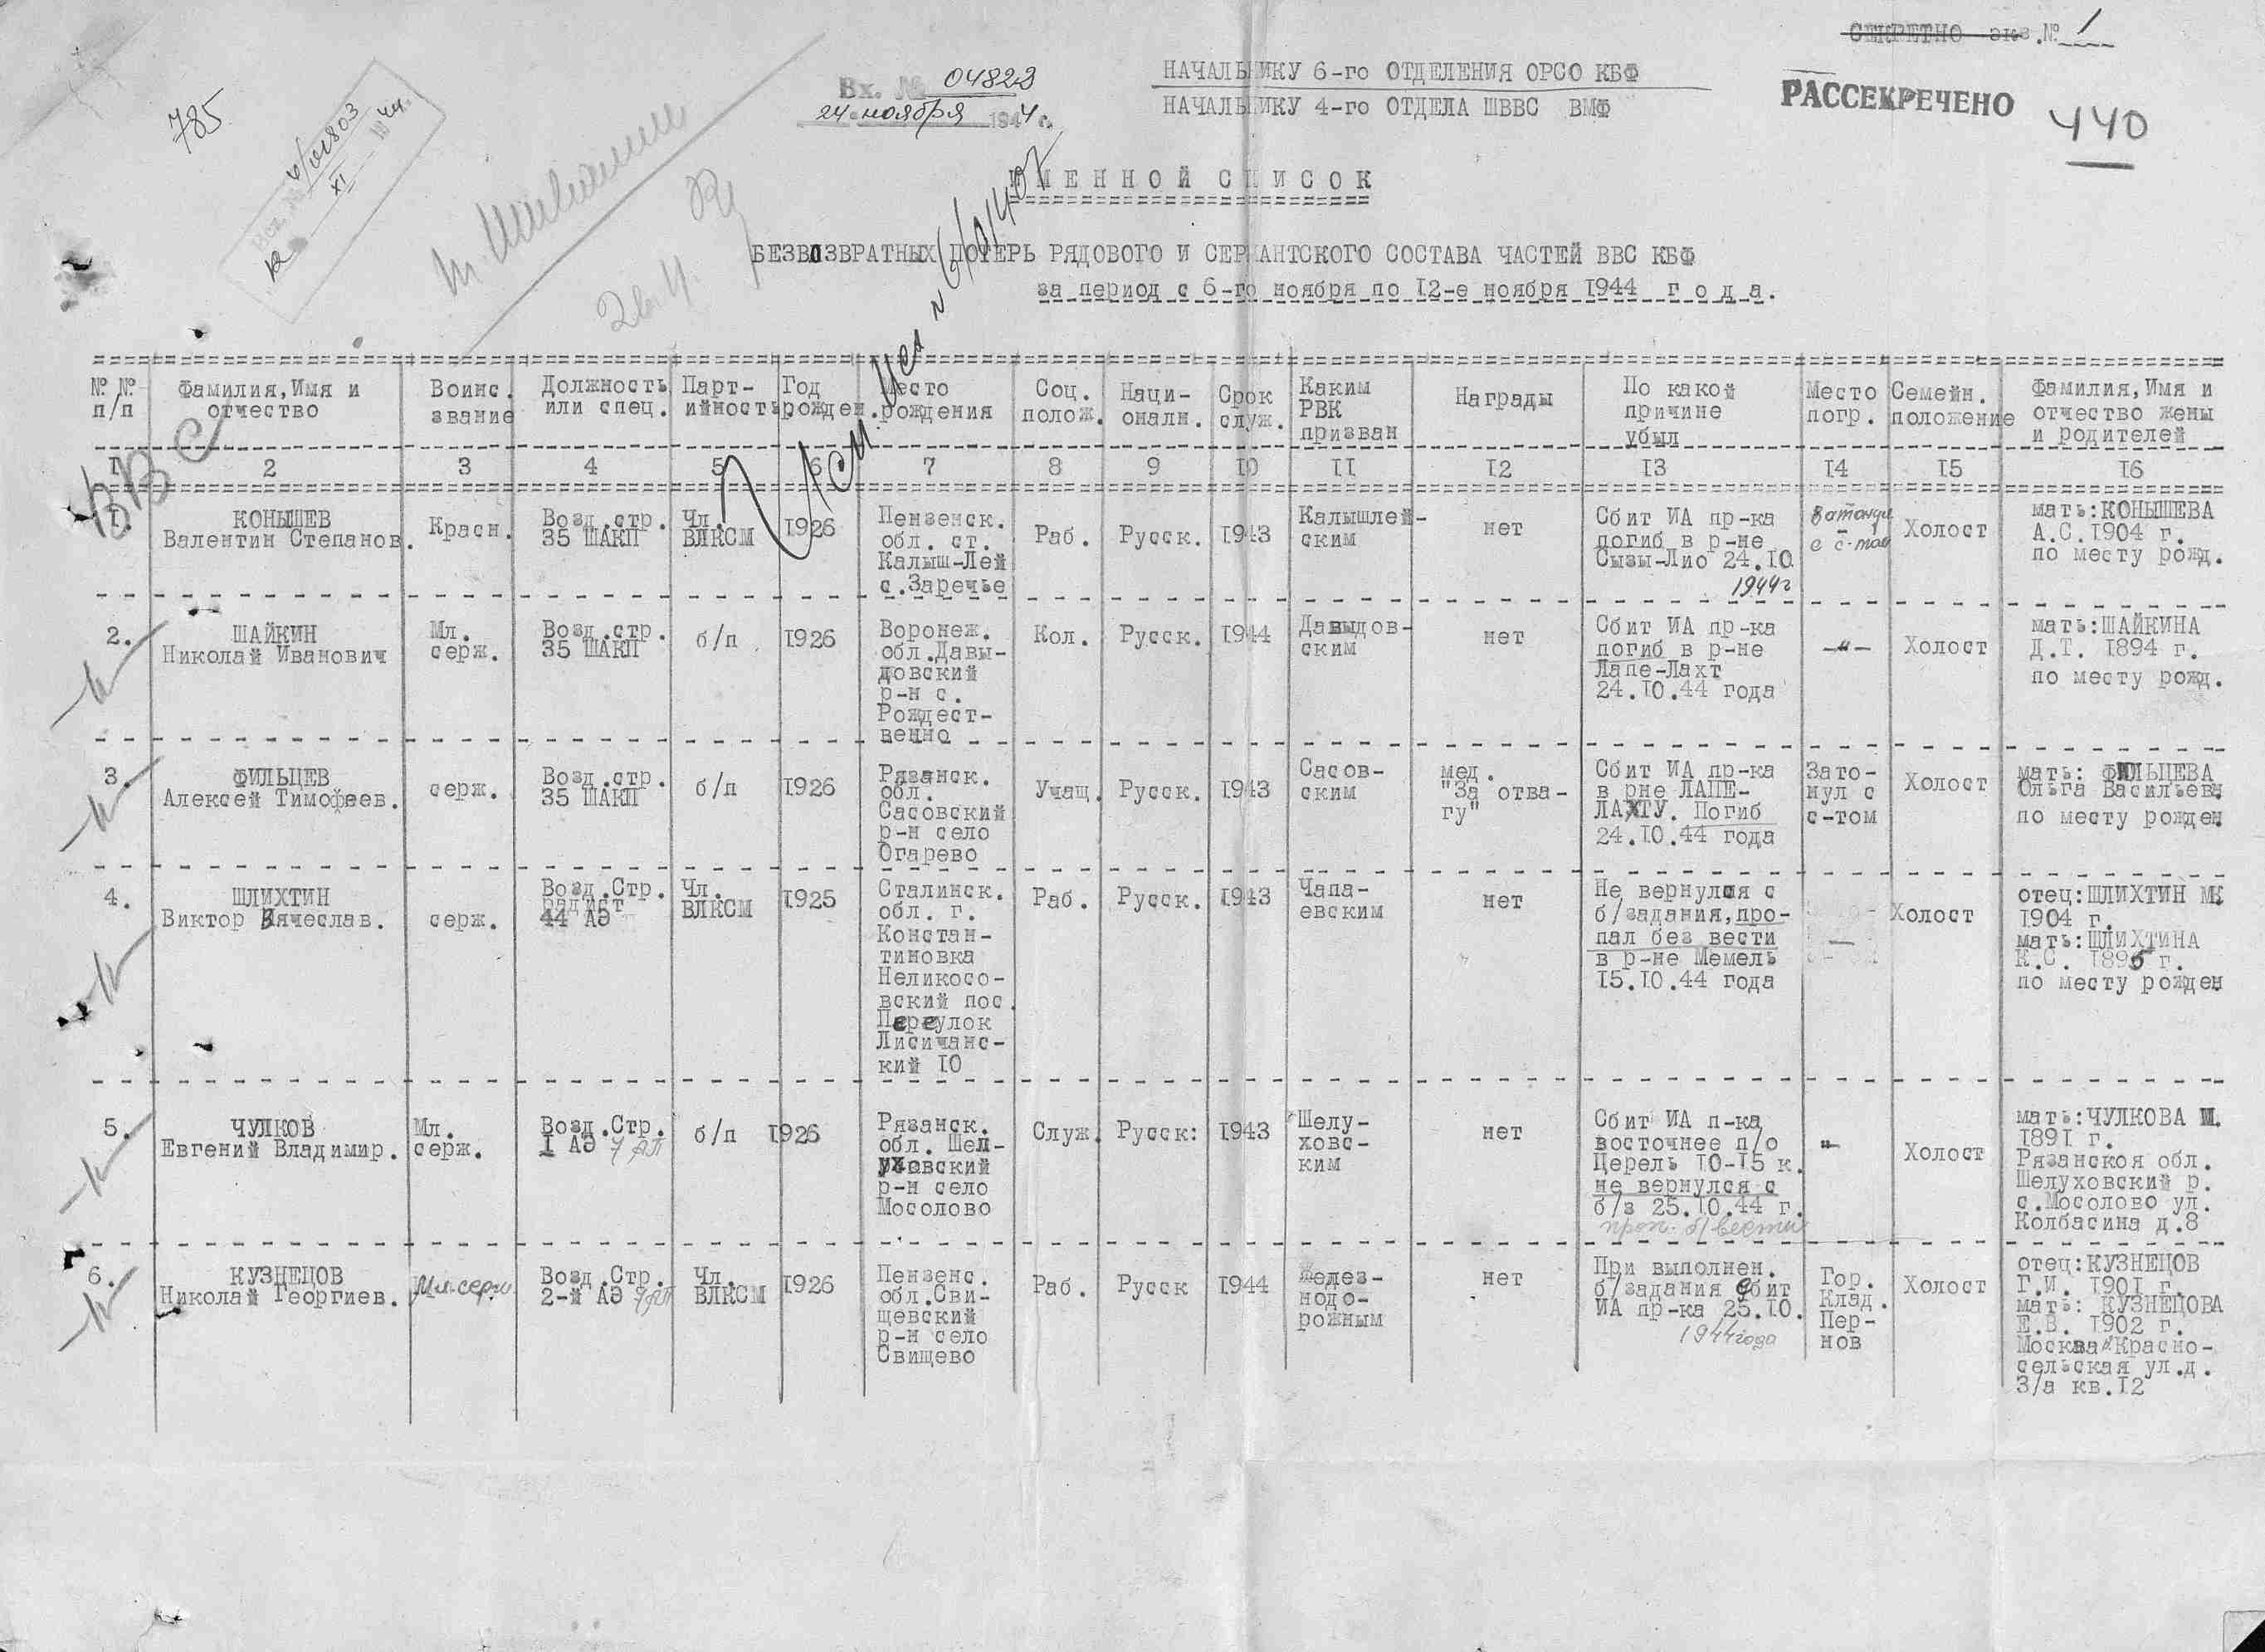 СЕКРЕТНО экз.№ 1
РАССЕКРЕЧЕНО
440
785
Вх. № 04823
24 ноября 1944 г.
НАЧАЛЬНИКУ 6-го ОТДЕЛЕНИЯ ОРСО КБФ
НАЧАЛЬНИКУ 4-го ОТДЕЛА ШВВС ВМФ
ИМЕННОЙ СПИСОК
БЕЗВОЗВРАТНЫХ ПОТЕРЬ РЯДОВОГО И СЕРЖАНТСКОГО СОСТАВА ЧАСТЕЙ ВВС КБФ
за период с 6-го ноября по 12-е ноября 1944 года.
№ № п/п
Фамилия, Имя и отчество
Воинс. звание
Должность или спец.
Парт-ийность
Год рожден.
Место рождения
Соц. полож.
Наци-ональн.
Срок служ.
Каким РВК призван
Награды
По какой причине убыл
Место погр.
Семейн. положение
Фамилия, Имя и отчество жены и родителей
I 2 3 4 5 6 7 8 9 10 II I2 I3 I4 I5 I6
I.
КОНЫШЕВ
Валентин Степанов.
Красн.
Возд.стр.
35 ШАКП
Чл.
ВЛКСМ
I926
Пензенск.
обл. ст.
Калыш-Лей
с.Заречье
Раб.
Русск.
I943
Калышлей-
ским
нет
Сбит ИА пр-ка
погиб в р-не
Сызы-Лио 24.I0
1944г
Затонул
с с-том
Холост
мать:КОНЫШЕВА
А.С.I904 г.
по месту рожд.
2.
ШАЙКИН
Николай Иванович
Мл.
серж.
Возд.стр.
35 ШАКП
б/п
I926
Воронеж.
обл.Давы-
довский
р-н с.
Рождест-
венно
Кол.
Русск.
I944
Давыдов-
ским
нет
Сбит ИА пр-ка
погиб в р-не
Лапе-Лахт
24.I0.44 года
-"-
Холост
мать:ШАЙКИНА
Д.Т. I894 г.
по месту рожд.
3.
ФИЛЬЦЕВ
Алексей Тимофеев.
серж.
Возд.стр.
35 ШАКП
б/п
I926
Рязанск.
обл.
Сасовский
р-н село
Огарево
Учащ.
Русск.
I943
Сасов-
ским
мед.
"За отва-
гу"
Сбит ИА пр-ка
в рне ЛАПЕ-
ЛАХТУ. Погиб
24.I0.44 года
Зато-
нул с
с-том
Холост
мать: ФИЛЬЦЕВА
Ольга Васильевн
по месту рожден
4.
ШЛИХТИН
Виктор Вячеслав.
серж.
Возд.Стр.
радист
44 АЭ
Чл.
ВЛКСМ
I925
Сталинск.
обл. г.
Констан-
тиновка
Неликосо-
вский пос.
Переулок
Лисичанс-
кий I0
Раб.
Русск.
I943
Чапа-
евским
нет
Не вернулся с
б/задания,про-
пал без вести
в р-не Мемель
I5.I0.44 года
—
Холост
отец:ШЛИХТИН МК
I904 г.
мать:ШЛИХТИНА
К.С. I895 г.
по месту рожден
5.
ЧУЛКОВ
Евгений Владимир.
Мл.
серж.
Возд.Стр.
I АЭ 7 АП
б/п
I926
Рязанск.
обл. Шел-
уховский
р-н село
Мосолово
Служ.
Русск:
I943
Шелу-
ховс-
ким
нет
Сбит ИА п-ка
восточнее п/о
Церель I0-I5 к.
не вернулся с
б/з 25.I0.44 г.
проп. б/вести
"-
Холост
мать:ЧУЛКОВА М.
I89I г.
Рязанскоя обл.
Шелуховский р.
с.Мосолово ул.
Колбасина д.8
6.
КУЗНЕЦОВ
Николай Георгиев.
Мл.серж
Возд.Стр.
2-й АЭ 7АП
Чл.
ВЛКСМ
I926
Пензенс.
обл.Сви-
щевский
р-н село
Свищево
Раб.
Русск
I944
Желез-
нодо-
рожным
нет
При выполнен.
б/задания сбит
ИА пр-ка 25.I0.
1944 года
Гор.
Клад.
Пер-
нов
Холост
отец:КУЗНЕЦОВ
Г.И. I90I г.
мать: КУЗНЕЦОВА
Е.В. I902 г.
Москва Красно-
сельская ул.д.
3/а кв.I2